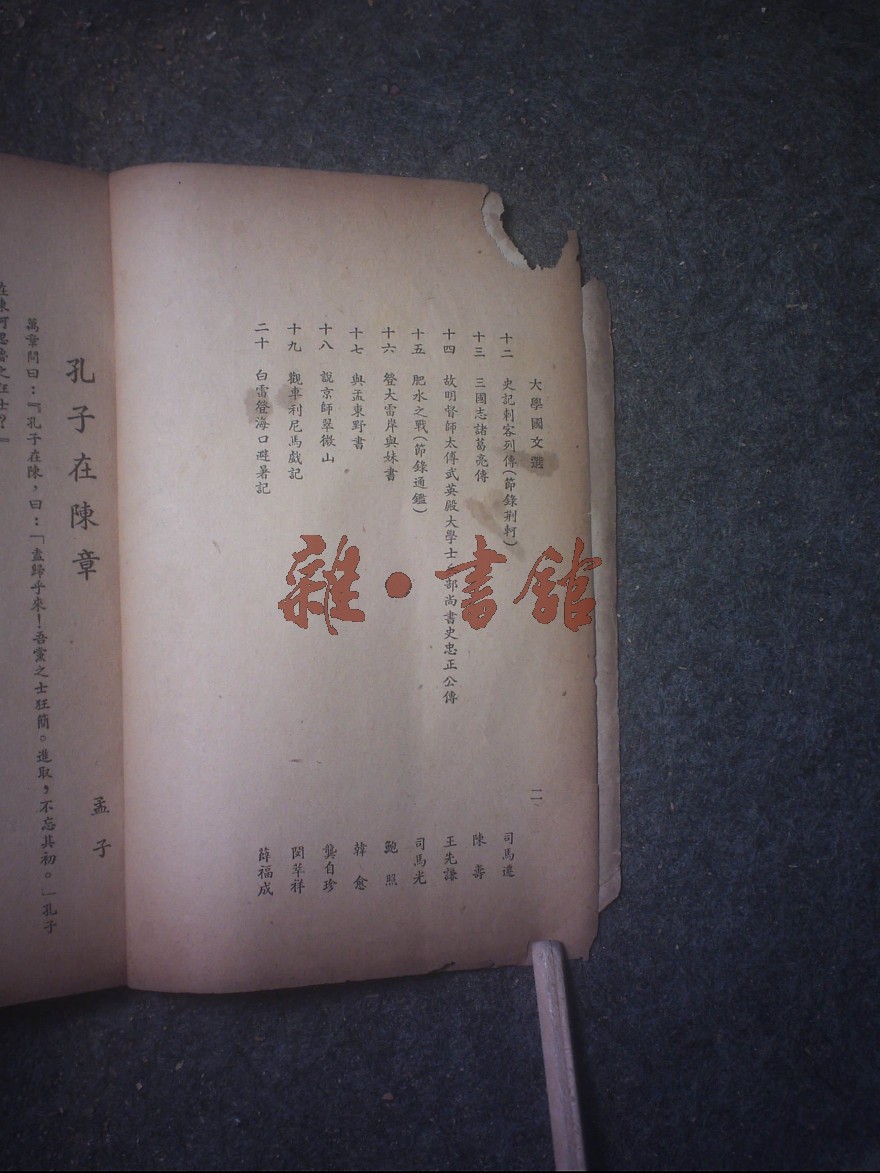 大學國文選
二
十二 史記刺客列傳(節錄荆軻) 司馬遷
十三 三國志諸葛亮傳 陳壽
十四 故明督師太傅武英殿大學士 部尚書史忠正公傳 王先謙
十五 肥水之戰(節錄通鑑) 司馬光
十六 登大雷岸與妹書 鮑照
十七 與孟東野書 韓愈
十八 說京師翠微山 龔自珍
十九 觀車利尼馬戲記 閔萃祥
二十 白雷登海口避暑記 薛福成
雜·書館
孔子在陳章
孟子
萬章問曰:『孔子在陳,曰:「盍歸乎來!吾黨之士狂簡。進取,不忘其初。」孔子
在陳何思魯之狂士?』